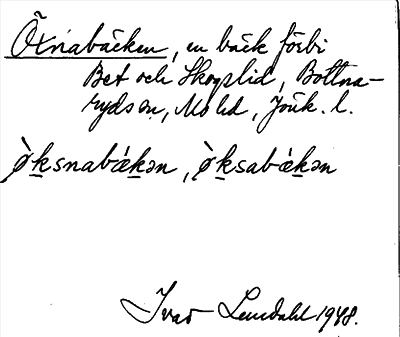 Öxnabäcken, en bäck förbi
Bet och Skogslid, Bottna-
ryds sn, Mo hd, Jönk. l.
ø̀ksnabǽkən, ø̀ksabǽkən
Ivar Lundahl 1948.